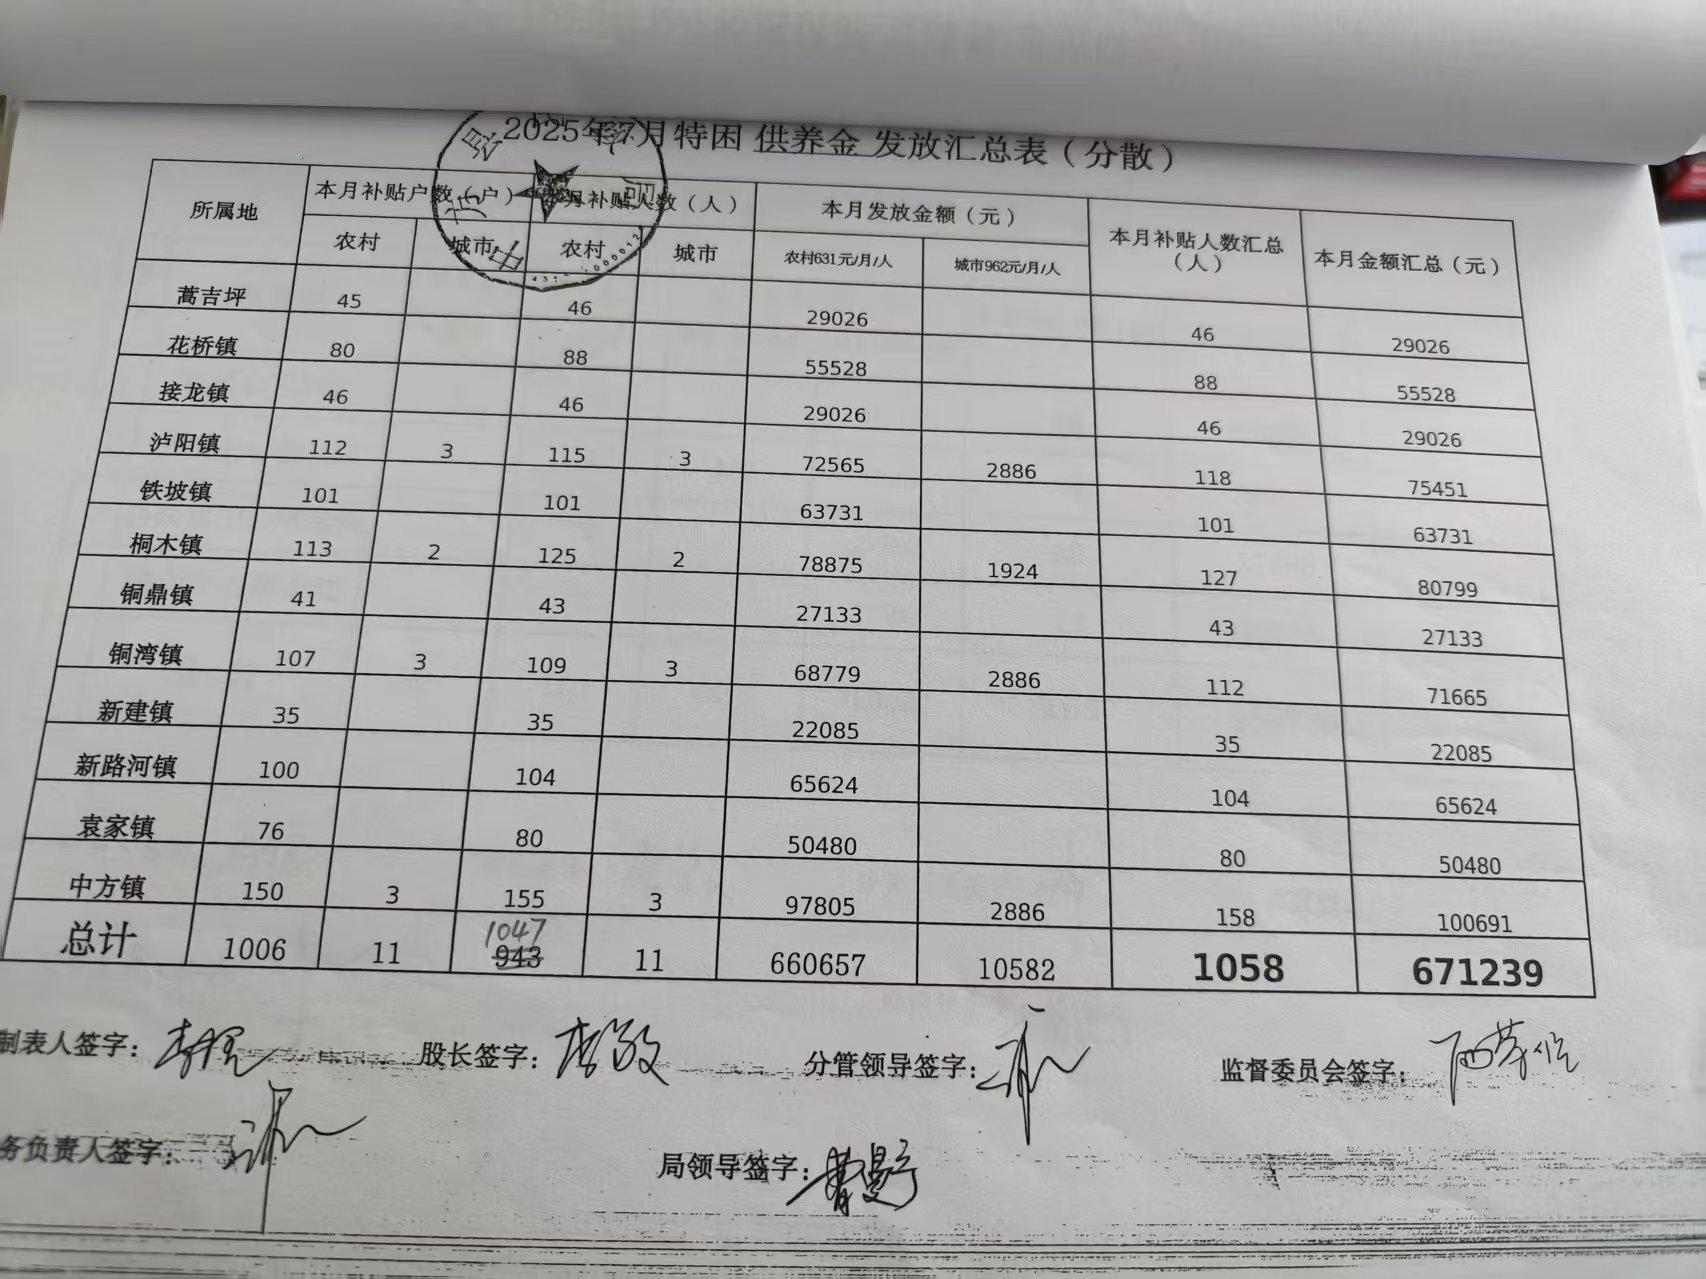 2025年7月特困 供养金 发放汇总表（分散）
所属地 本月补贴户数（户） 本月补贴人数（人） 本月发放金额（元） 本月补贴人数汇总（人） 本月金额汇总（元）
农村 城市 农村 城市 农村631元/月/人 城市962元/月/人
蒿吉坪 45 46 29026 46 29026
花桥镇 80 88 55528 88 55528
接龙镇 46 46 29026 46 29026
泸阳镇 112 3 115 3 72565 2886 118 75451
铁坡镇 101 101 63731 101 63731
桐木镇 113 2 125 2 78875 1924 127 80799
铜鼎镇 41 43 27133 43 27133
铜湾镇 107 3 109 3 68779 2886 112 71665
新建镇 35 35 22085 35 22085
新路河镇 100 104 65624 104 65624
袁家镇 76 80 50480 80 50480
中方镇 150 3 155 3 97805 2886 158 100691
1047
总计 1006 11 943 11 660657 10582 1058 671239
制表人签字： 股长签字： 分管领导签字： 监督委员会签字：
务负责人签字： 局领导签字：